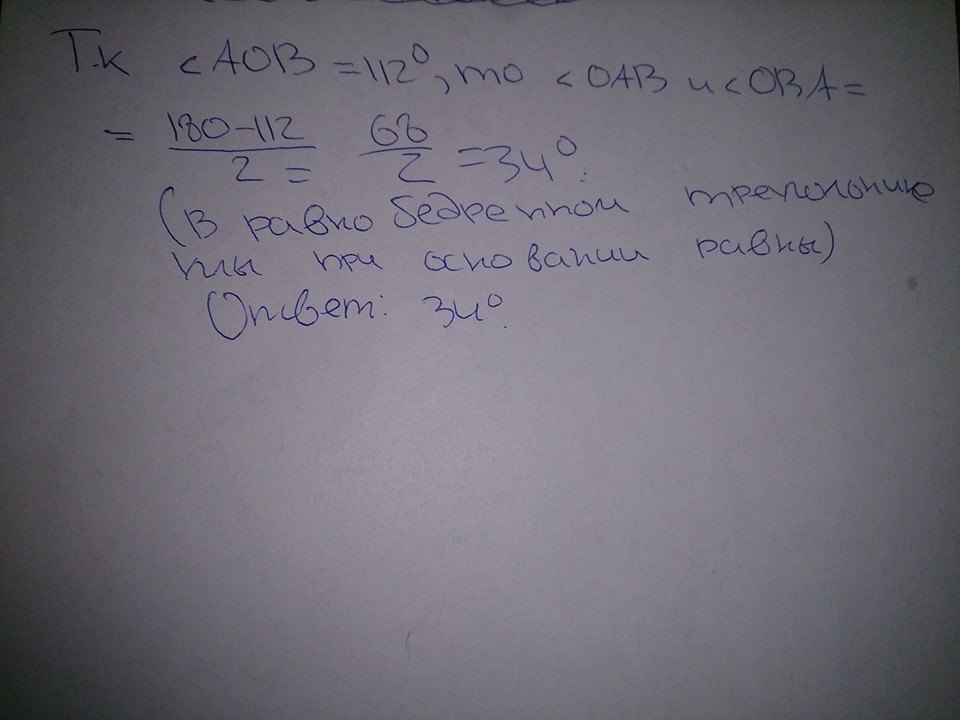 Т.к <AOB =112⁰, то <OAB и <OBA =
= 180-112/2 = 68/2 =34⁰.
(В равнобедренном треугольнике
углы при основании равны)
Ответ: 34⁰.